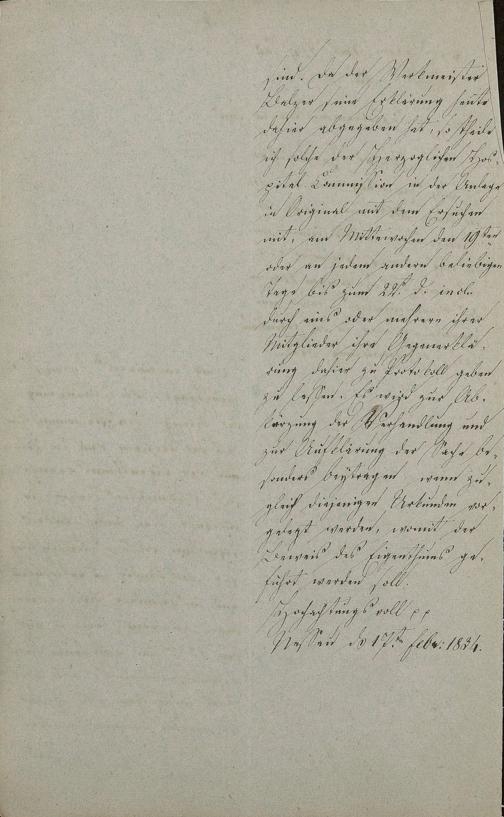 sind. Da der Werkmeister
Balzer seine Erklärung heute
dahier abgegeben hat, so theile
ich solche der Herzoglichen Hos-
pital Commission in der Anlage
in Original mit dem Ersuchen
mit, am Mittewochen den 19ten
oder an jedem andern beliebigen
Tage bis zum 22t. d. incl.
durch eins oder mehrere ihrer
Mitglieder ihre Gegenerklä-
rung dahier zu Protokoll geben
zu lassen. Es wird zur Ab-
kürzung der Verhandlung und
zur Aufklärung der Sache be-
sonders beytragen, wenn zu-
gleich diejenigen Urkunden vor-
gelegt werden, womit der
Beweis des Eigenthums ge-
führt werden soll.
Hochachtungsvoll pp
17t. Febr: 1834.